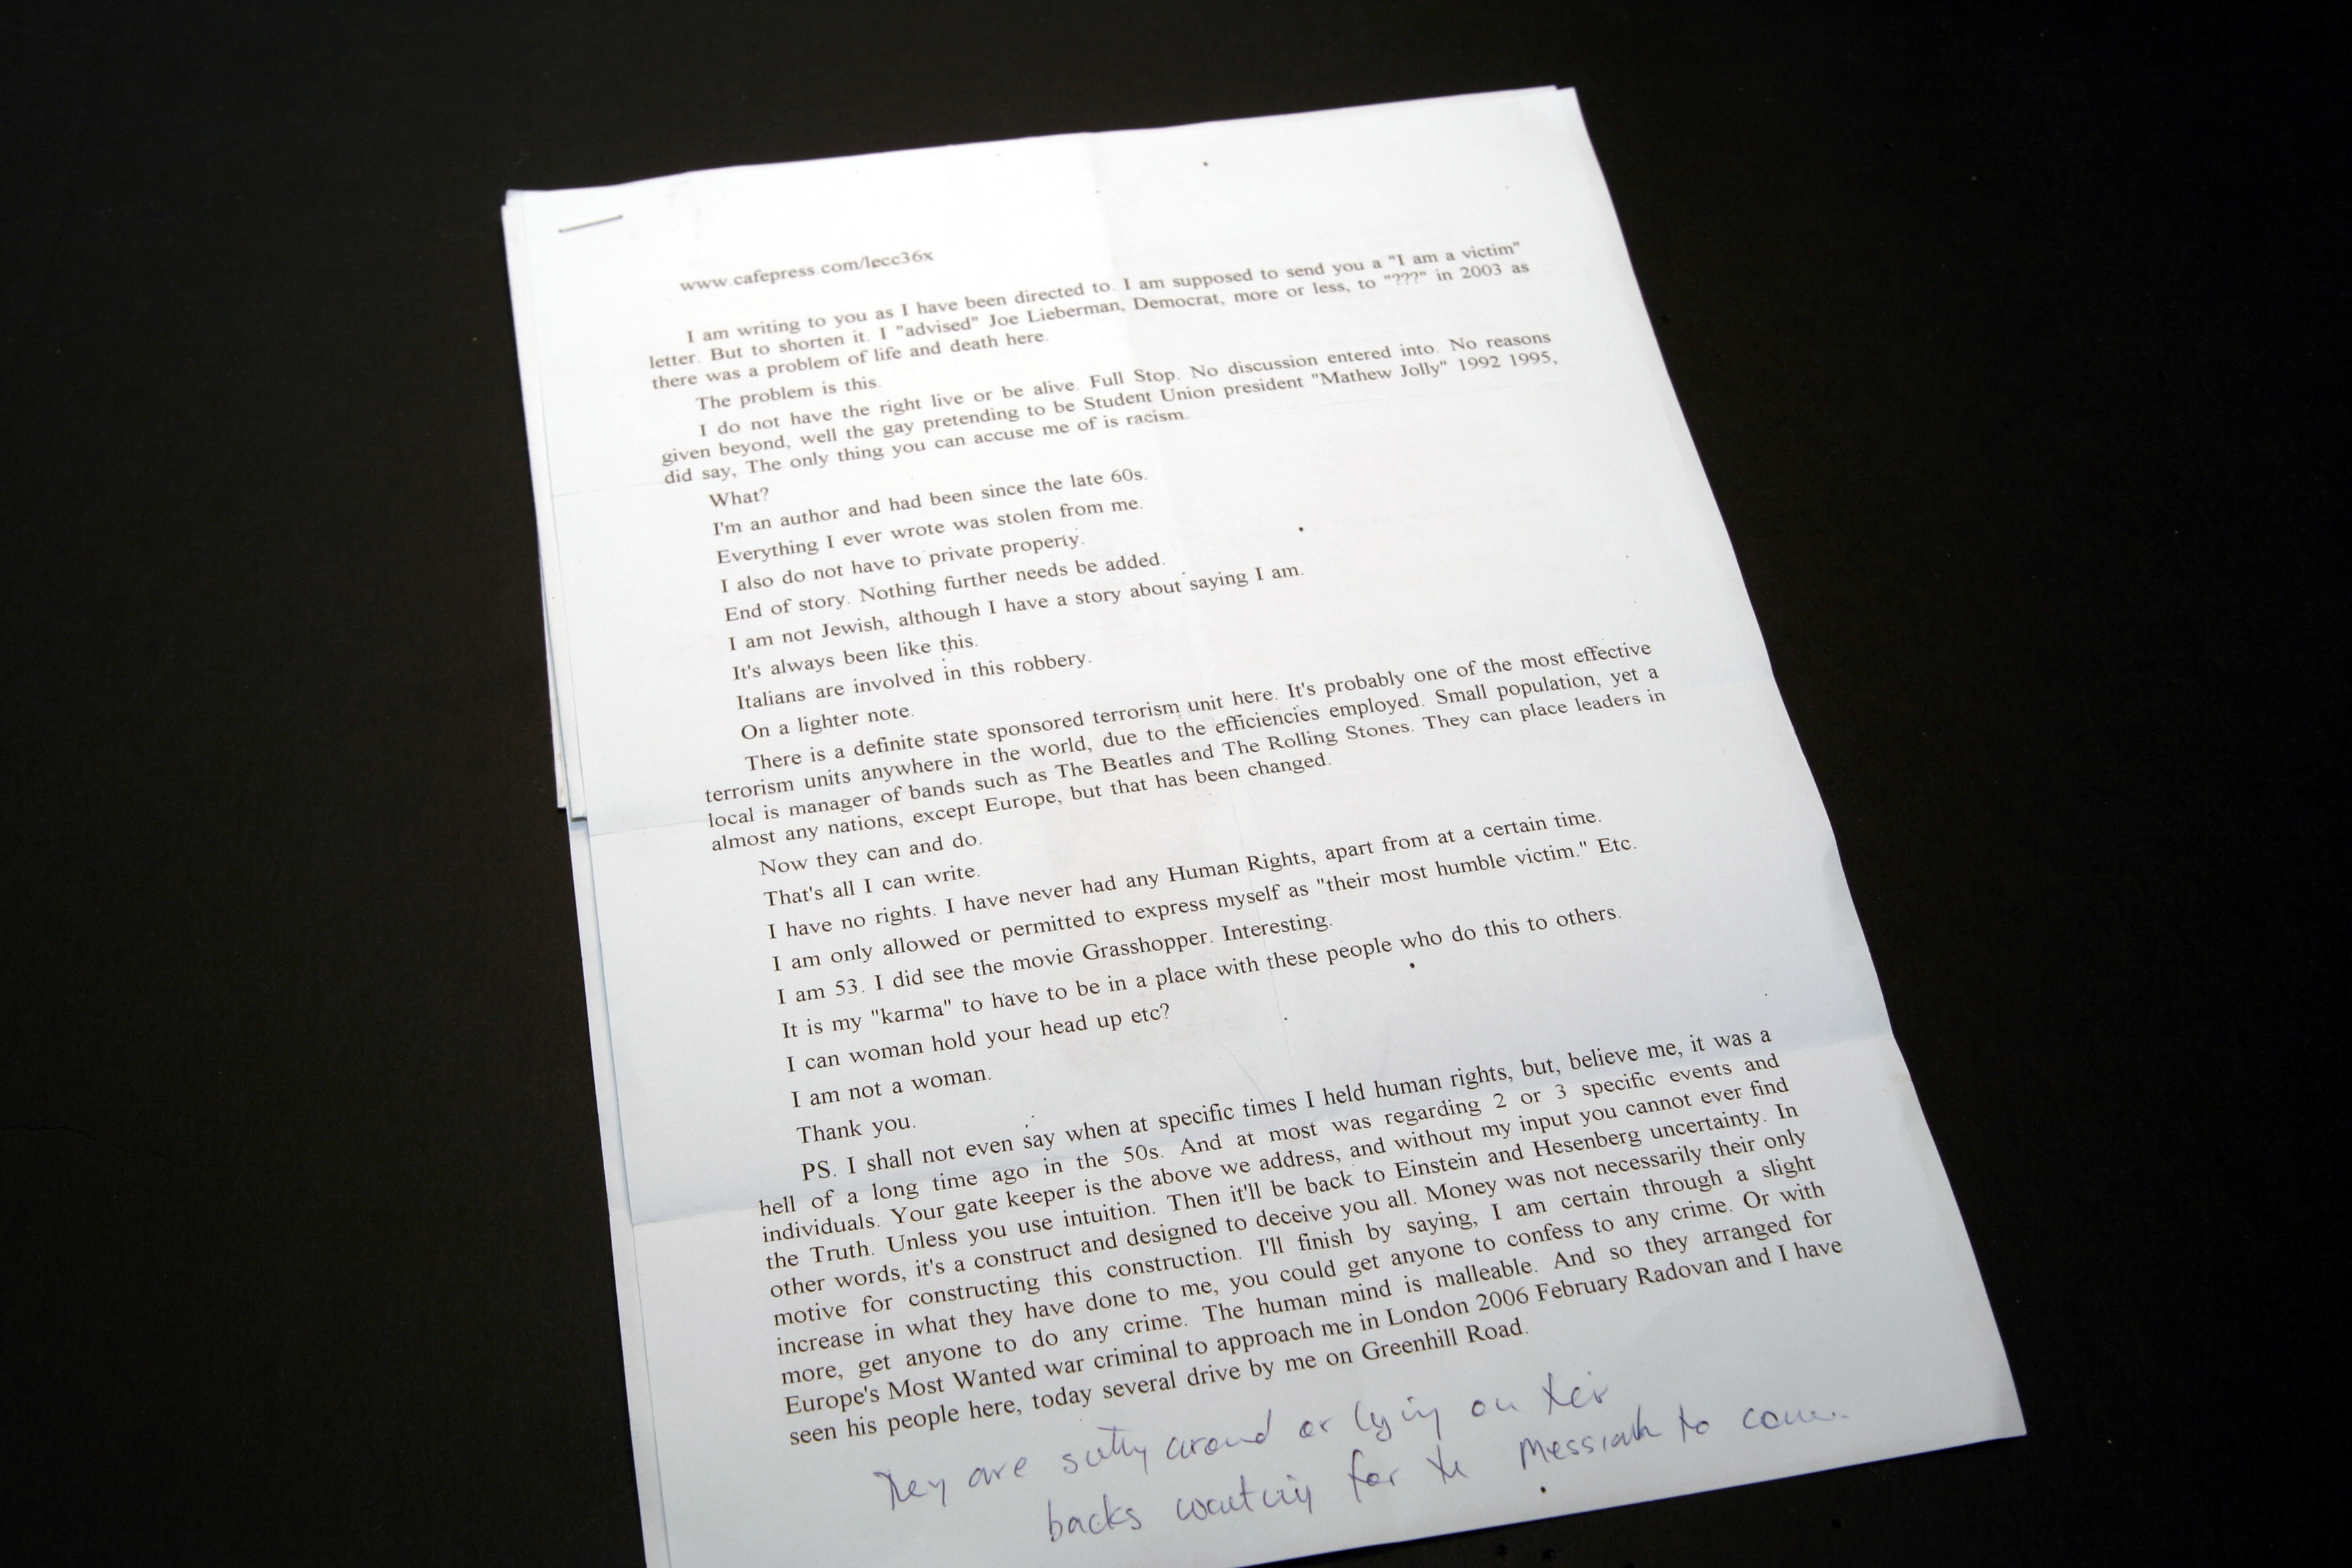 www.cafepress.com/lecc36x
I am writing to you as I have been directed to. I am supposed to send you a "I am a victim"
letter. But to shorten it. I "advised" Joe Lieberman, Democrat, more or less, to "???" in 2003 as
there was a problem of life and death here.
The problem is this.
I do not have the right live or be alive. Full Stop. No discussion entered into. No reasons
given beyond, well the gay pretending to be Student Union president "Mathew Jolly" 1992 1995,
did say, The only thing you can accuse me of is racism.
What?
I'm an author and had been since the late 60s.
Everything I ever wrote was stolen from me.
I also do not have to private property.
End of story. Nothing further needs be added.
I am not Jewish, although I have a story about saying I am.
It's always been like this.
Italians are involved in this robbery.
On a lighter note.
There is a definite state sponsored terrorism unit here. It's probably one of the most effective
terrorism units anywhere in the world, due to the efficiencies employed. Small population, yet a
local is manager of bands such as The Beatles and The Rolling Stones. They can place leaders in
almost any nations, except Europe, but that has been changed.
Now they can and do.
That's all I can write.
I have no rights. I have never had any Human Rights, apart from at a certain time.
I am only allowed or permitted to express myself as "their most humble victim." Etc.
I am 53. I did see the movie Grasshopper. Interesting.
It is my "karma" to have to be in a place with these people who do this to others.
I can woman hold your head up etc?
I am not a woman.
Thank you.
PS. I shall not even say when at specific times I held human rights, but, believe me, it was a
hell of a long time ago in the 50s. And at most was regarding 2 or 3 specific events and
individuals. Your gate keeper is the above we address, and without my input you cannot ever find
the Truth. Unless you use intuition. Then it'll be back to Einstein and Hesenberg uncertainty. In
other words, it's a construct and designed to deceive you all. Money was not necessarily their only
motive for constructing this construction. I'll finish by saying, I am certain through a slight
increase in what they have done to me, you could get anyone to confess to any crime. Or with
more, get anyone to do any crime. The human mind is malleable. And so they arranged for
Europe's Most Wanted war criminal to approach me in London 2006 February Radovan and I have
seen his people here, today several drive by me on Greenhill Road.
They are sitting around or lying on their
backs waiting for the Messiah to come.